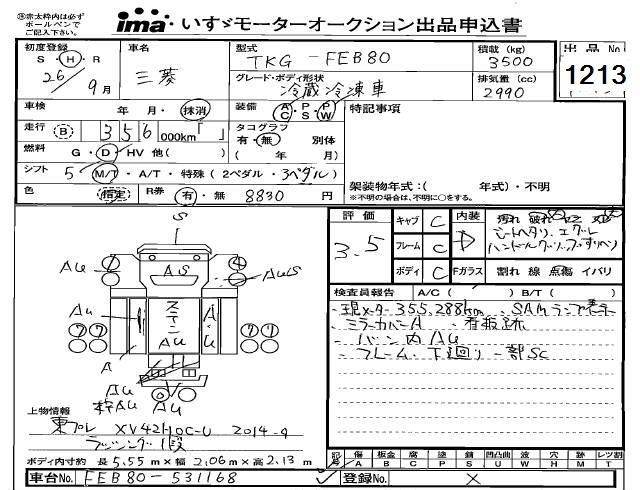 ※赤太枠内は必ず
ボールペンで
ご記入下さい。
ima いすゞモーターオークション出品申込書
初度登録 車名 型式 TKG-FEB80 積載(kg) 3500 出品No. 1213
S・H・R 26年9月 三菱 グレード・ボディ形状 冷蔵冷凍車 排気量(cc) 2990
車検 年・月・抹消 装備 AC・PS・PW 特記事項
走行 B 356 000km「 」 タコグラフ 有・無 別体
燃料 G・D・HV 他( ) ( 年 月)
シフト 5 M/T・A/T・特殊(2ペダル・3ペダル) 架装物年式:( 年式)・不明
色 指定 R券 有・無 8830円 ※不明の場合は、不明に○をする。
S
評価 3.5 キャブ C 内装 D 汚れ 破れ
フレーム C シートヘタリ、エグレ
ボディ C Fガラス 割れ 線 点傷 イバリ
検査員報告 A/C( ) B/T( )
現メーター355,288km
ミラーカバーA ・看板跡
・バン内AU
・フレーム、下廻り一部SC
AU
AS
④
AUS
AU
ステン
A・U
⑦⑦
⑦
A
AU
AU
AU
上物情報
東プレ 2014-9
ラッシング1段
ボディ内寸約 長5.55m×幅2.06m×高2.13m
記号 傷 A 板金 B 腐 C 塗 P 錆 S 凹凸曲 U 波 W 穴 H 跡 M レツ割 T
車台No. FEB80-531168 登録No. ×